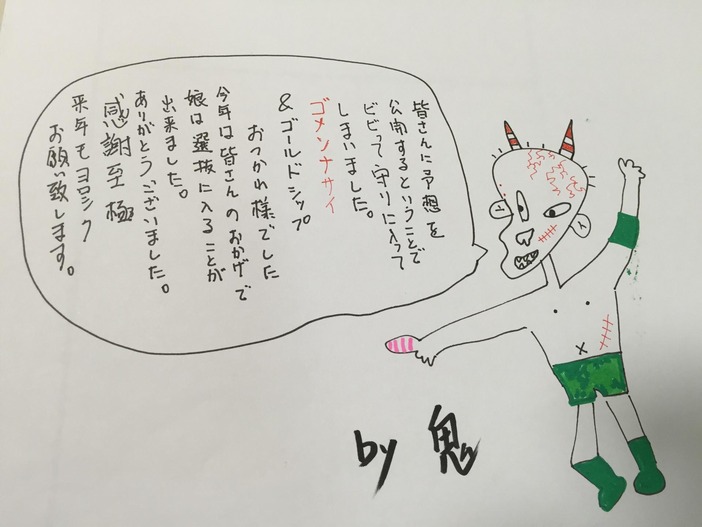 皆さんに予想を
公開するということで
ビビって守りに入って
しまいました。
ゴメンナサイ
&ゴールドシップ
おつかれ様でした
今年は皆さんのおかげで
娘は選抜に入ることが
出来ました。
ありがとうございました。
感謝至極
来年もヨロシク
お願い致します。
by 鬼